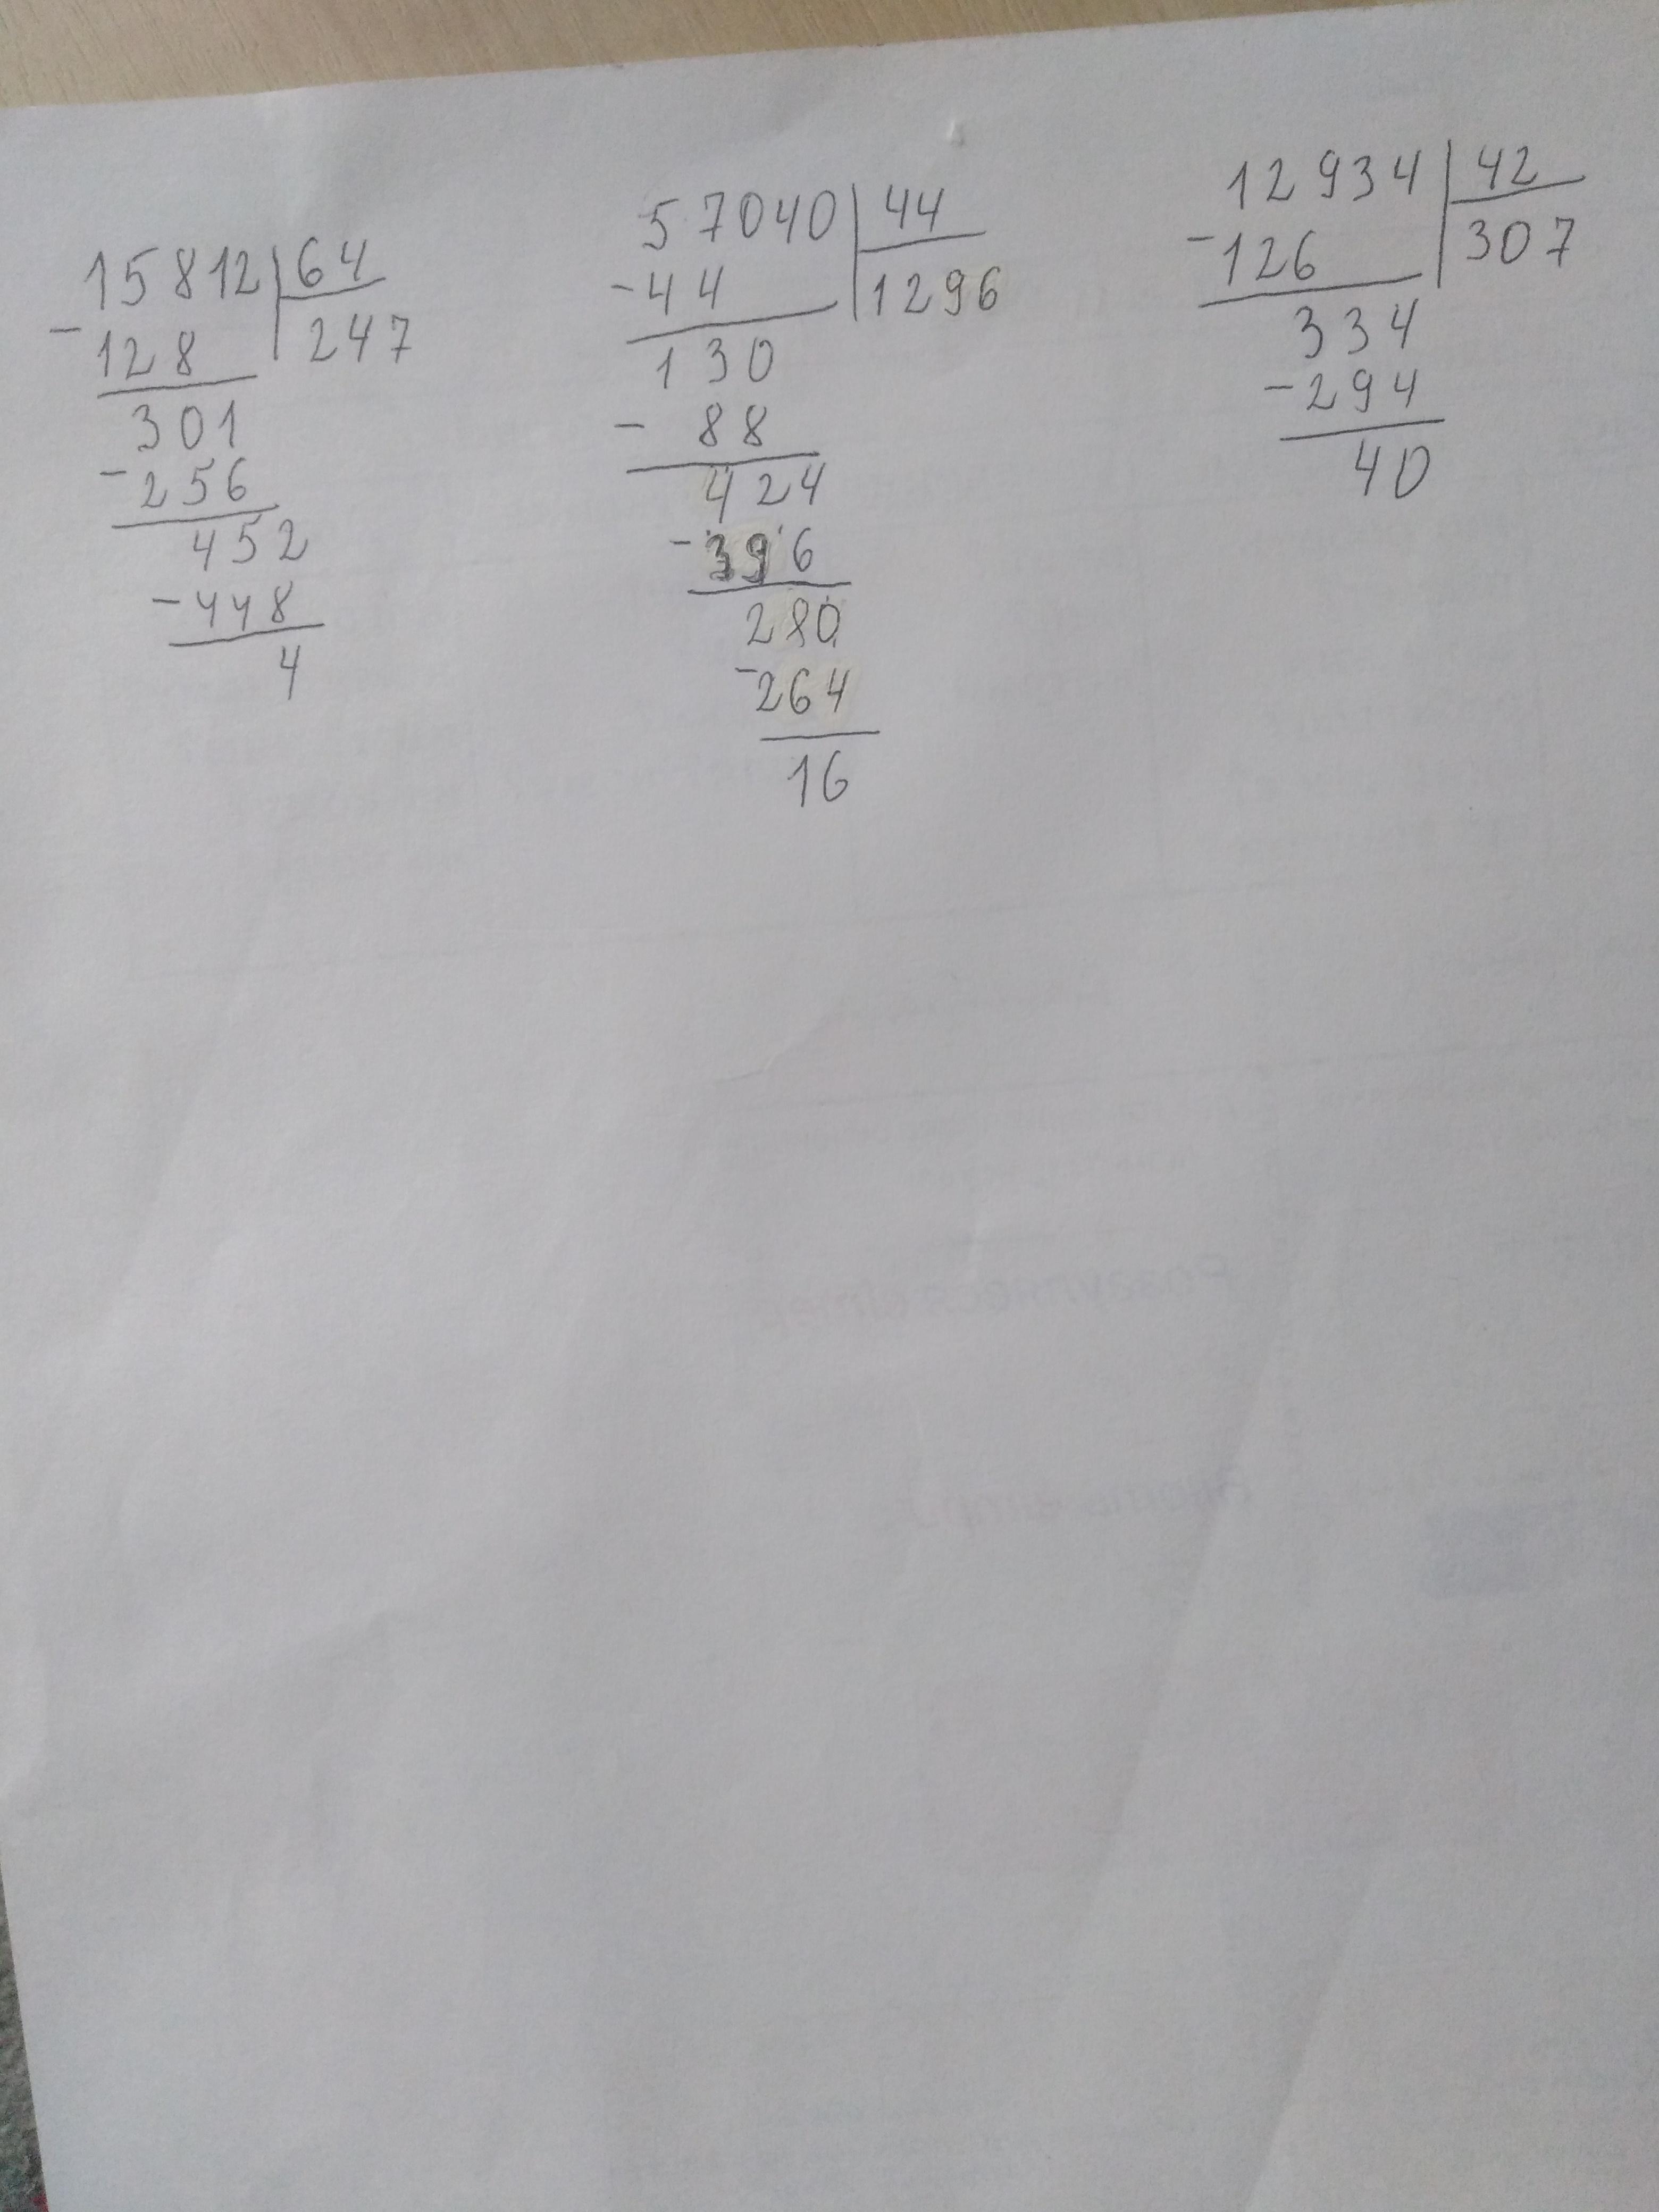 15812 64
-128 247
301
-256
452
-448
4
57040 44
-44 1296
130
- 88
424
-396
280
-264
16
12934 42
-126 307
334
-294
40